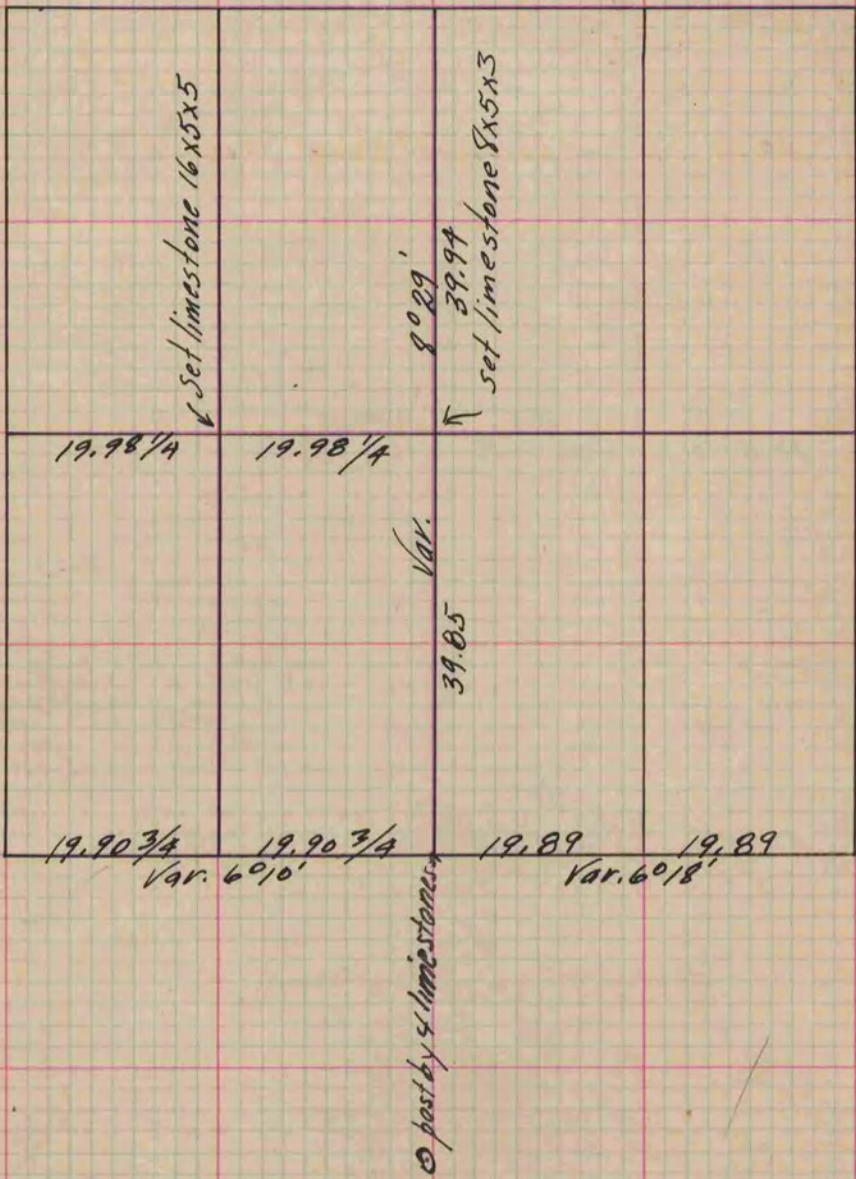 set limestone 16x5x5
8° 29'
39.94
set limestone 8x5x3
19.98 1/4
19.98 1/4
Var.
39.85
19.90 3/4
19.90 3/4
19.89
19.89
Var. 6° 10'
Var. 6° 18'
post by 4 limestones